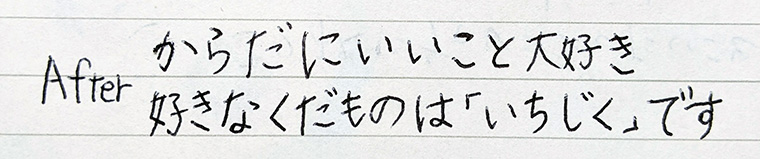 After
からだにいいこと大好き
好きなくだものは「いちじく」です